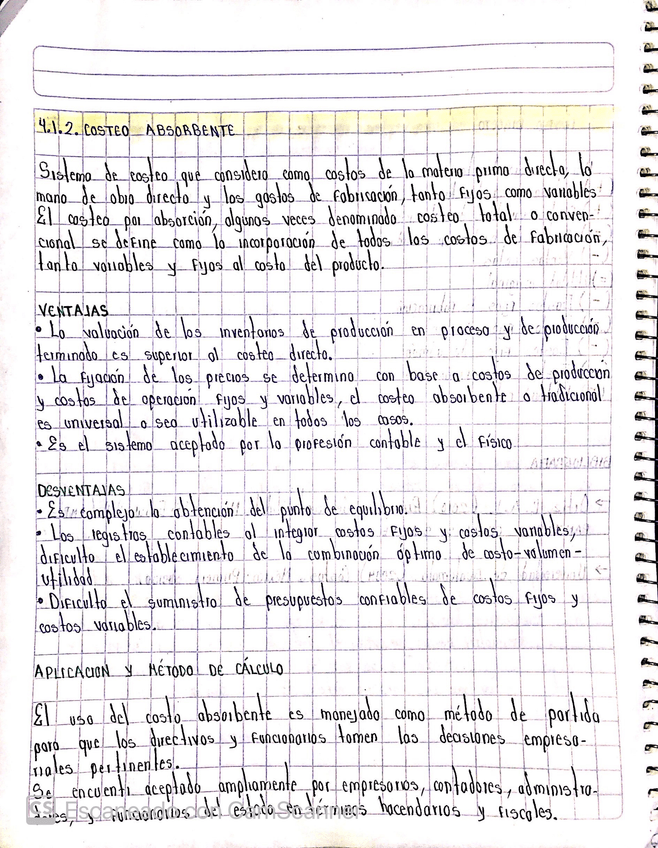 4.1.2. COSTEO ABSORBENTE
Sistema de costeo que considera como costos de la materia prima directa, la
mano de obra directa y los gastos de fabricación, tanto fijos como variables
El costeo por absorción, algunas veces denominado costeo total o conven-
cional se define como la incorporación de todos los costos de fabricación,
tanto variables y fijos al costo del producto.
VENTAJAS
• La valuación de los inventarios de producción en proceso y de producción
terminada es superior al costeo directo.
• La fijación de los precios se determina con base a costos de producción
y costos de operación fijos y variables, el costeo absorbente o tradicional
es universal o sea utilizable en todos los casos.
• Es el sistema aceptado por la profesión contable y el físico
DESVENTAJAS
• Es complejo la obtención del punto de equilibrio.
• Los registros contables al integrar costos fijos y costos variables,
dificulta el establecimiento de la combinación óptima de costo-volumen-
utilidad
• Dificulta el suministro de presupuestos confiables de costos fijos y
costos variables.
APLICACION Y MÉTODO DE CÁLCULO
El uso del costo absorbente es manejado como método de partida
para que los directivos y funcionarios tomen las decisiones empresa-
riales pertinentes.
Se encuentra aceptado ampliamente por empresarios, contadores, administra-
dores, y funcionarios del estado en términos hacendarios y fiscales.
CS Escaneado con CamScanner